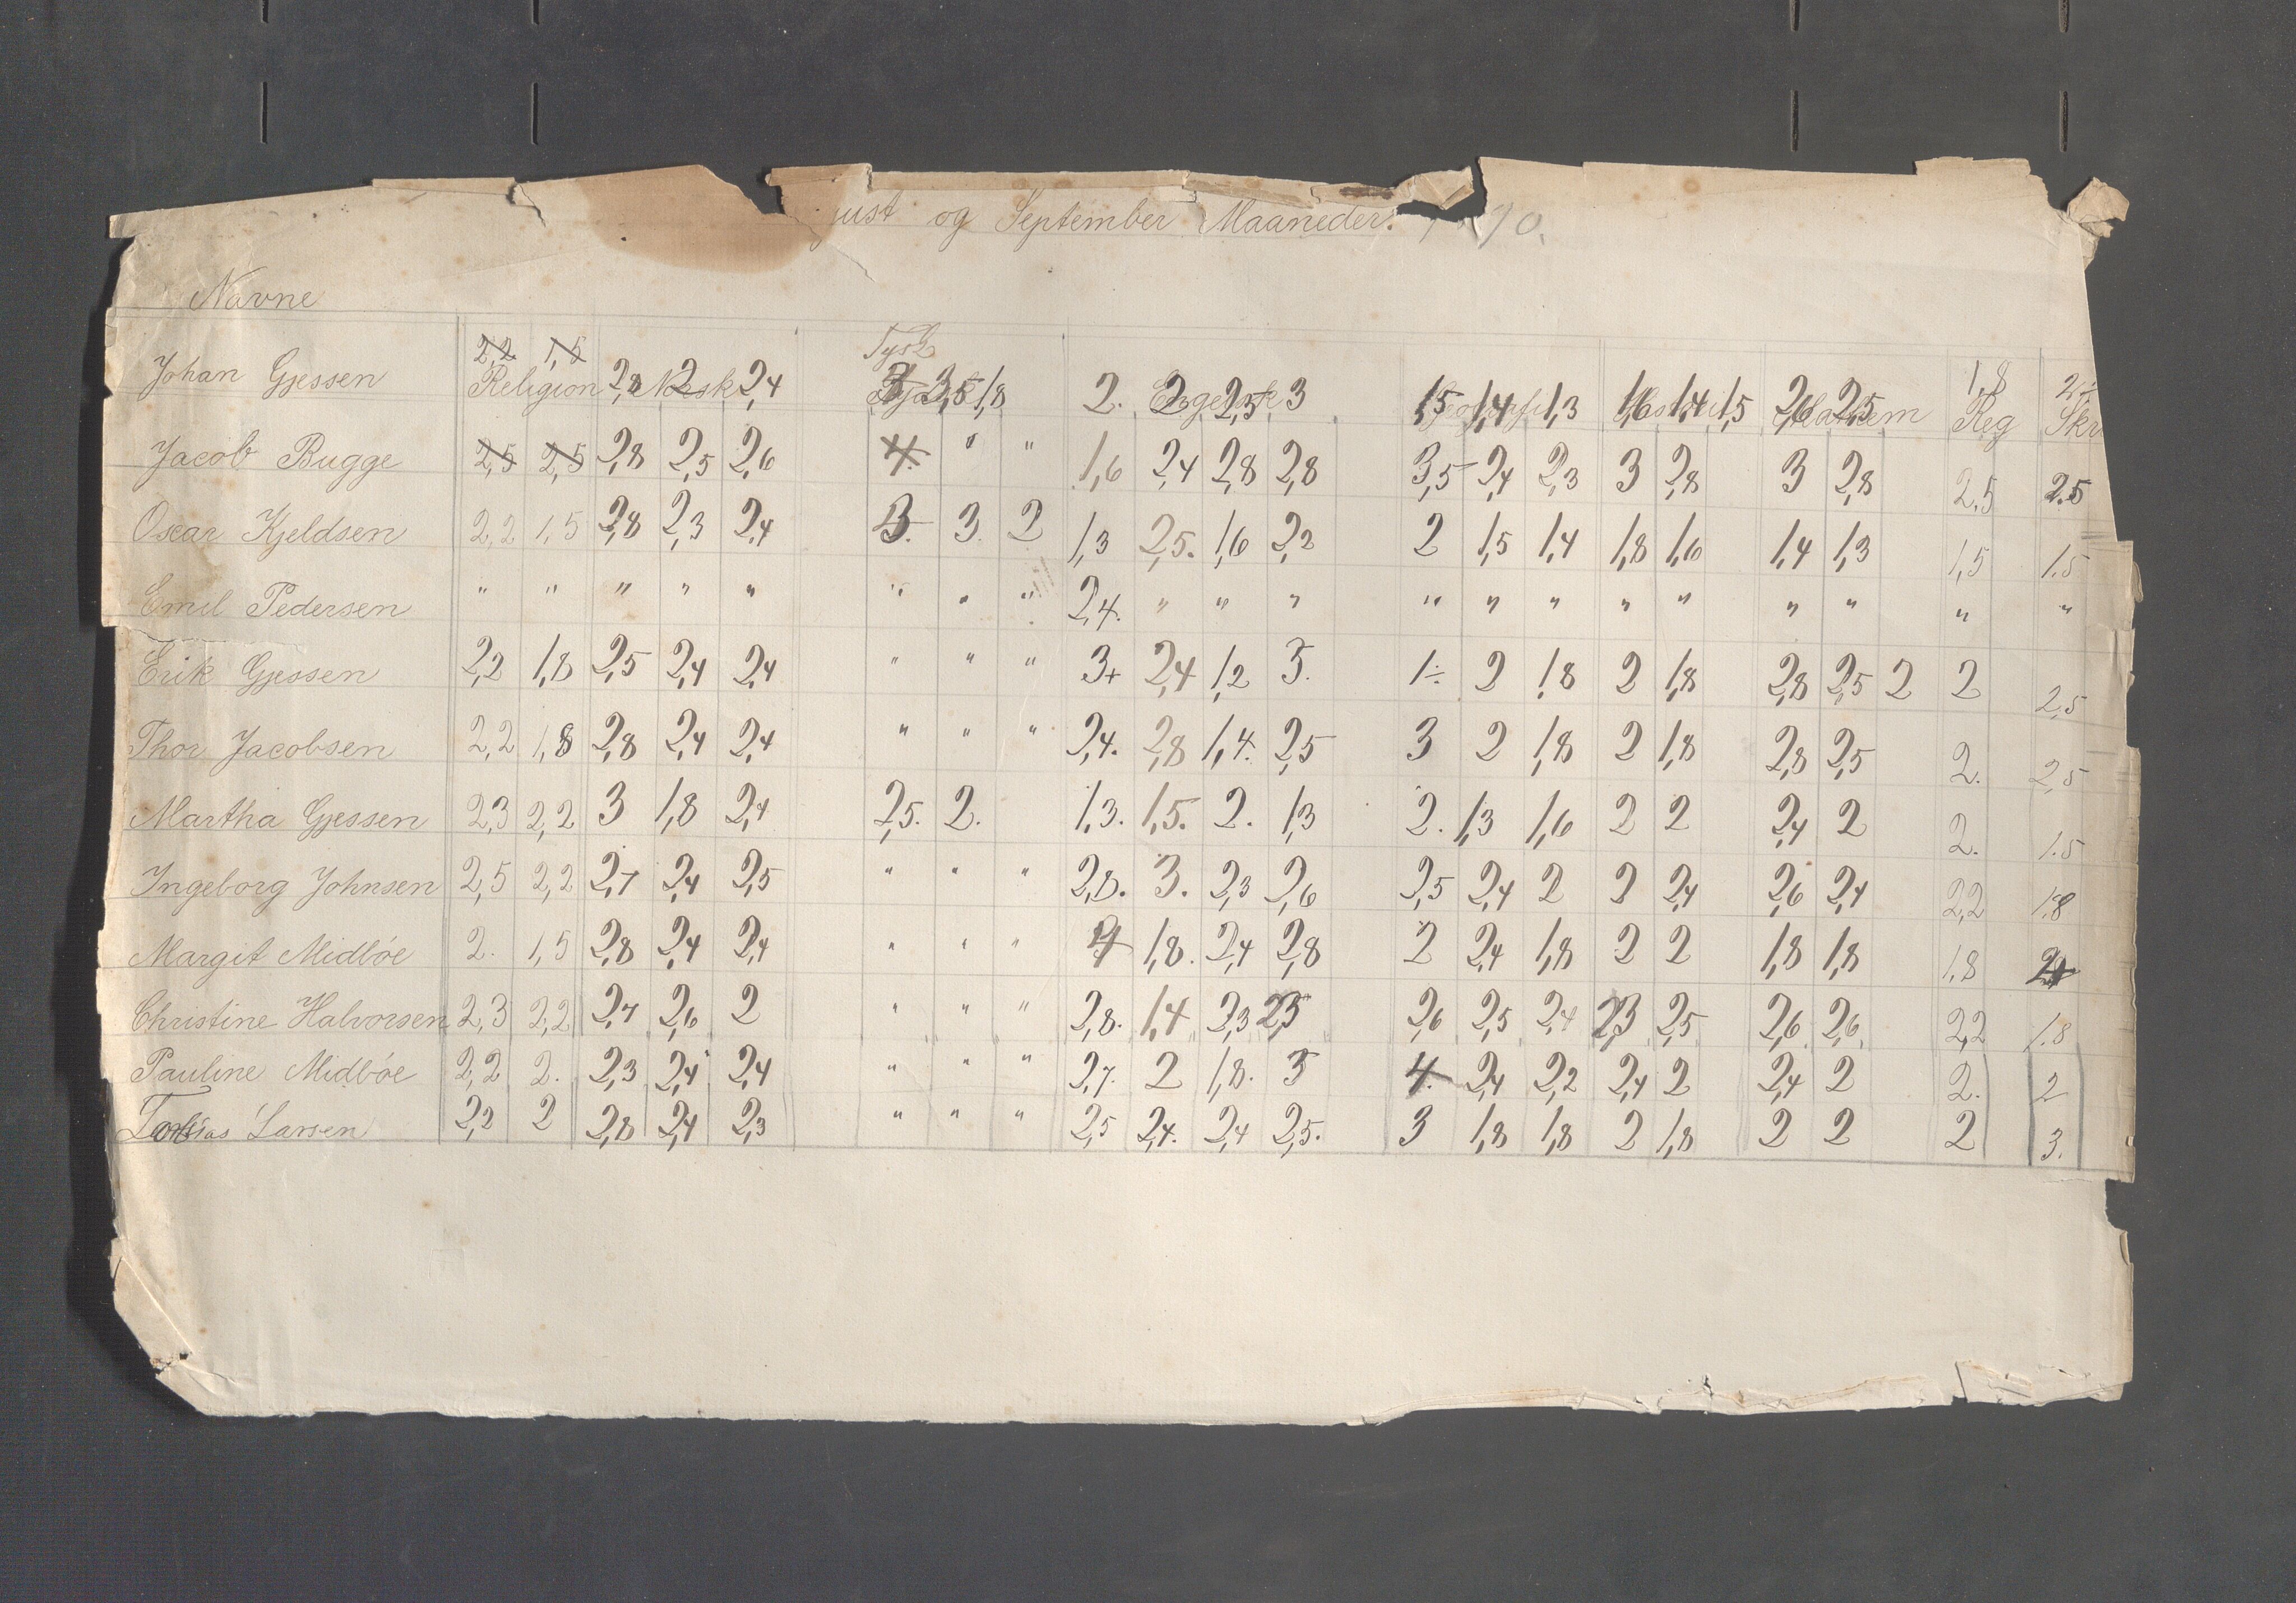 just og September Maaneder.
Navne
Johan Gjessen 2,2 1,5 Religion 2,8 Norsk 2 2,4 Tysk 3,5 1,8 2. Engelsk 2,5 3 1,5 1,4 1,3 1,6 1,4 1,5 2,6 2,5 Mathem 1,8 Reg Skr
Jacob Bugge 2,5 2,5 2,8 2,5 2,6 4. " " 1,6 2,4 2,8 2,8 3,5 2,4 2,3 3 2,8 3 2,8 2,5 2.5
Oscar Kjeldsen 2,2 1,5 2,8 2,3 2,4 3. 3. 2 1,3 2,5. 1,6 2,2 2 1,5 1,4 1,8 1,6 1,4 1,3 1,5 1.5
Emil Pedersen " " " " " " " " 2,4. " " " " " " " " " " " "
Erik Gjessen 2,2 1,8 2,5 2,4 2,4 " " " 3+ 2,4 1,2 3. 1÷ 2 1,8 2 1,8 2,8 2,5 2 2 2,5
Thor Jacobsen 2,2 1,8 2,8 2,4 2,4 " " " 2,4. 2,8 1,4. 2,5 3 2 1,8 2 1,8 2,8 2,5 2. 2,5
Martha Gjessen 2,3 2,2 3 1,8 2,4 2,5. 2. 1,3. 1,5. 2. 1,3 2. 1,3 1,6 2 2 2,4 2 2. 1.5
Ingeborg Johnsen 2,5 2,2 2,7 2,4 2,5 " " " 2,8. 3. 2,3 2,6 2,5 2,4 2 2 2,4 2,6 2,4 2,2 1.8
Margit Midbóe 2. 1,5 2,8 2,4 2,4 " " " 1,8. 2,4 2,8 2 2,4 1,8 2 2 1,8 1,8 1,8
Christine Halvorsen 2,3 2,2 2,7 2,6 2 " " " 2,8. 1,4 2,3 2,5 2,6 2,5 2,4 2,3 2,5 2,6 2,6 2,2 1.8
Pauline Midbóe 2,2 2. 2,3 2,4 2,4 " " " 2,7. 2 1,8. 3 4. 2,4 2,2 2,4 2 2,4 2 2. 2
Tobias Larsen 2,2 2 2,8 2,4 2,3 " " " 2,5 2,4. 2,4 2,5. 3 1,8 1,8 2 1,8 2 2 2 3.